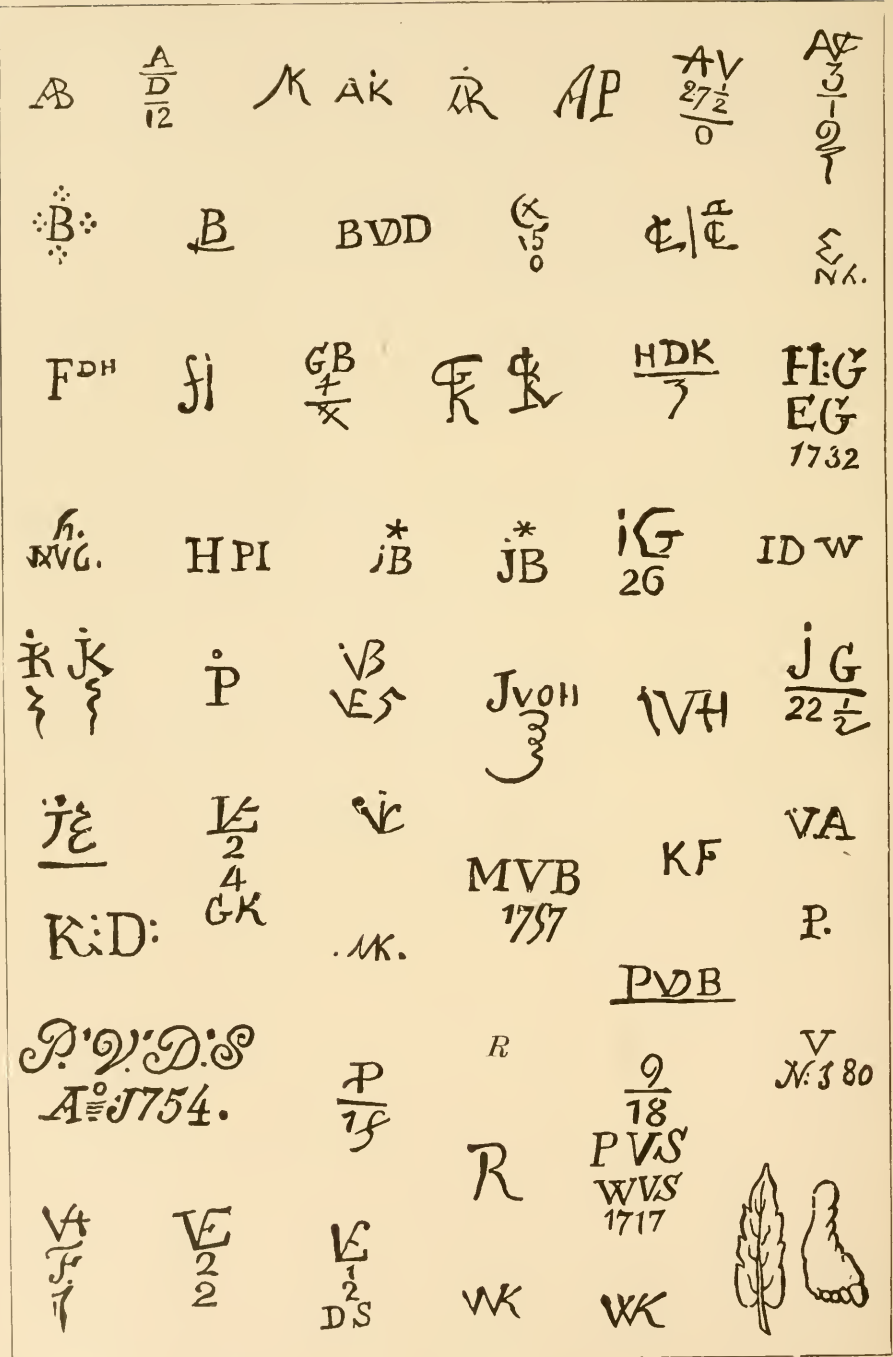 AB
A
D
12
AK
AK
AP
AV
27 1/2
0
B
B
BVD
CX
15
0
FDH
GB
4
X
GK
CK
HDK
3
H:G
EG
1732
h.
NVG.
HPI
* iB
* jB
iG
26
IDW
K
jK
P
VB
VE5
JVOH
IVH
jG
22 1/2
VE
2
4
GK
VC
MVB
1757
KF
VA
K:D:
NK.
P.
PVDB
P.V.D.S
Ao J754.
P
15
R
9
18
PVS
WVS
1717
V
N:380
R
VA
F
VE
2
2
VE
1
2
DS
WK
WK